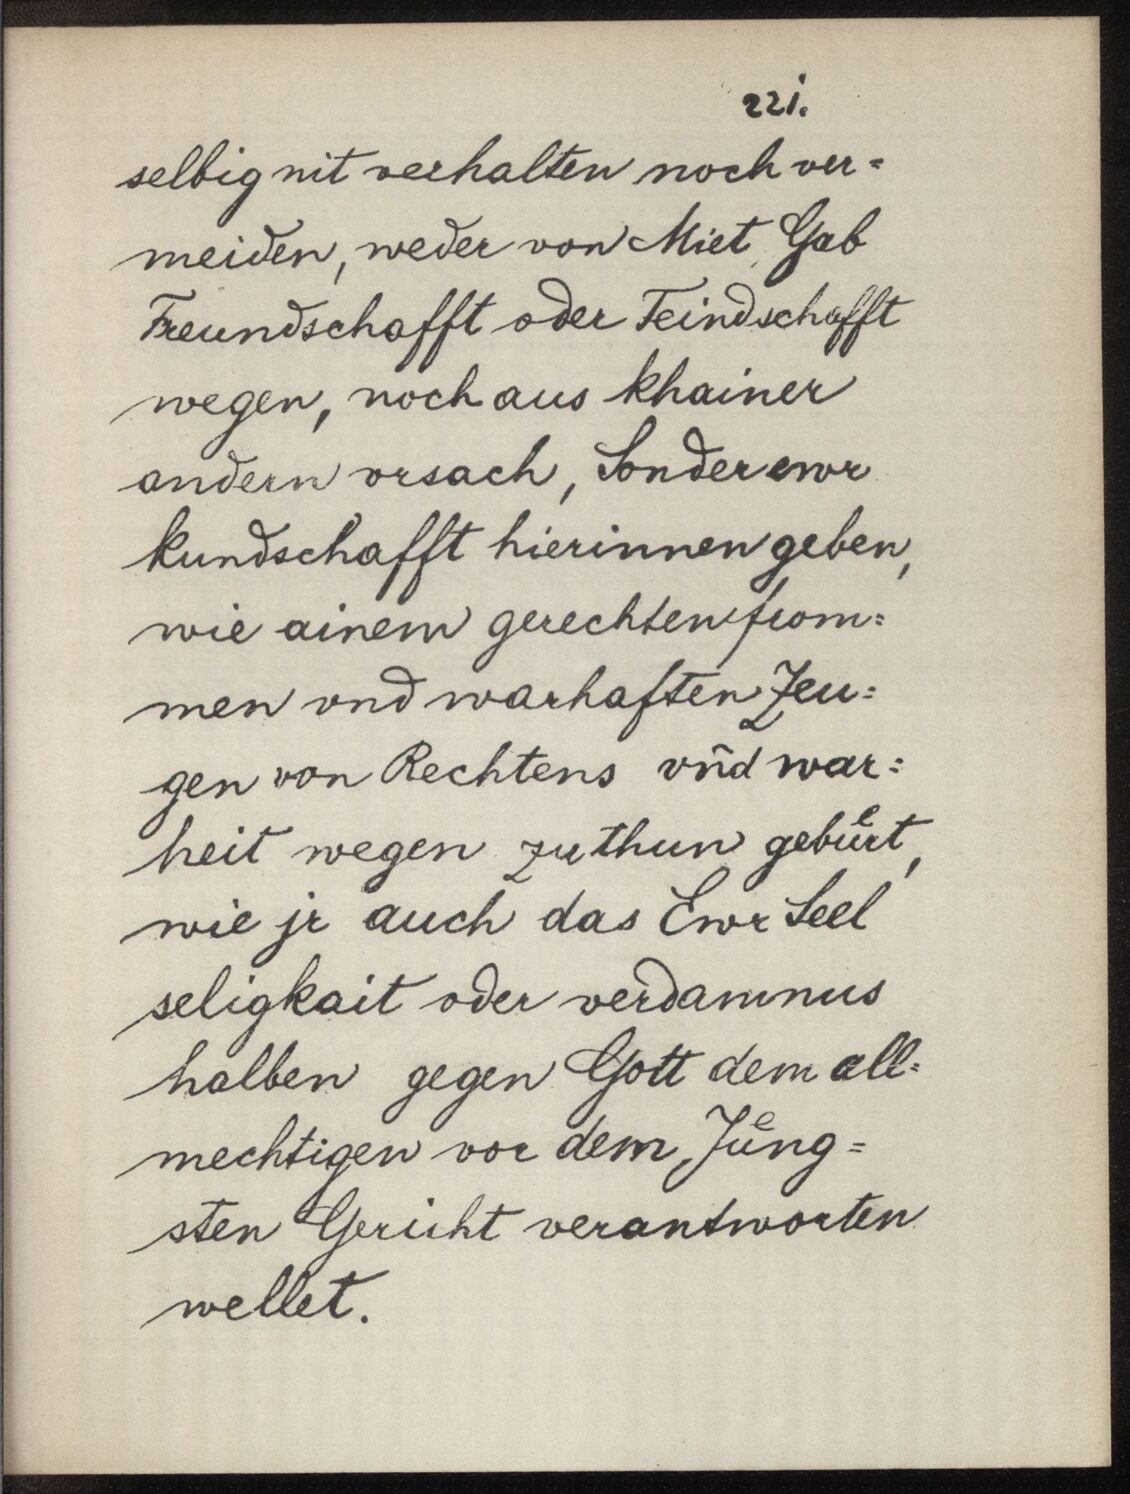 221.
selbig nit verhalten noch ver=
meiden, weder von Miet Gab
Freundschafft oder Feindschafft
wegen, noch aus khainer
andern vrsach, Sonder ewr
kundschafft hierinnen geben,
wie ainem gerechten from=
men vnd warhaften Zeu=
gen von Rechtens vn̄d war=
heit wegen zuthun gebuͤrt,
wie jr auch das Ewr Seel
seligkait oder verdamnus
halben gegen Gott dem all=
mechtigen vor dem Juͤng=
sten Gericht verantworten
wellet.